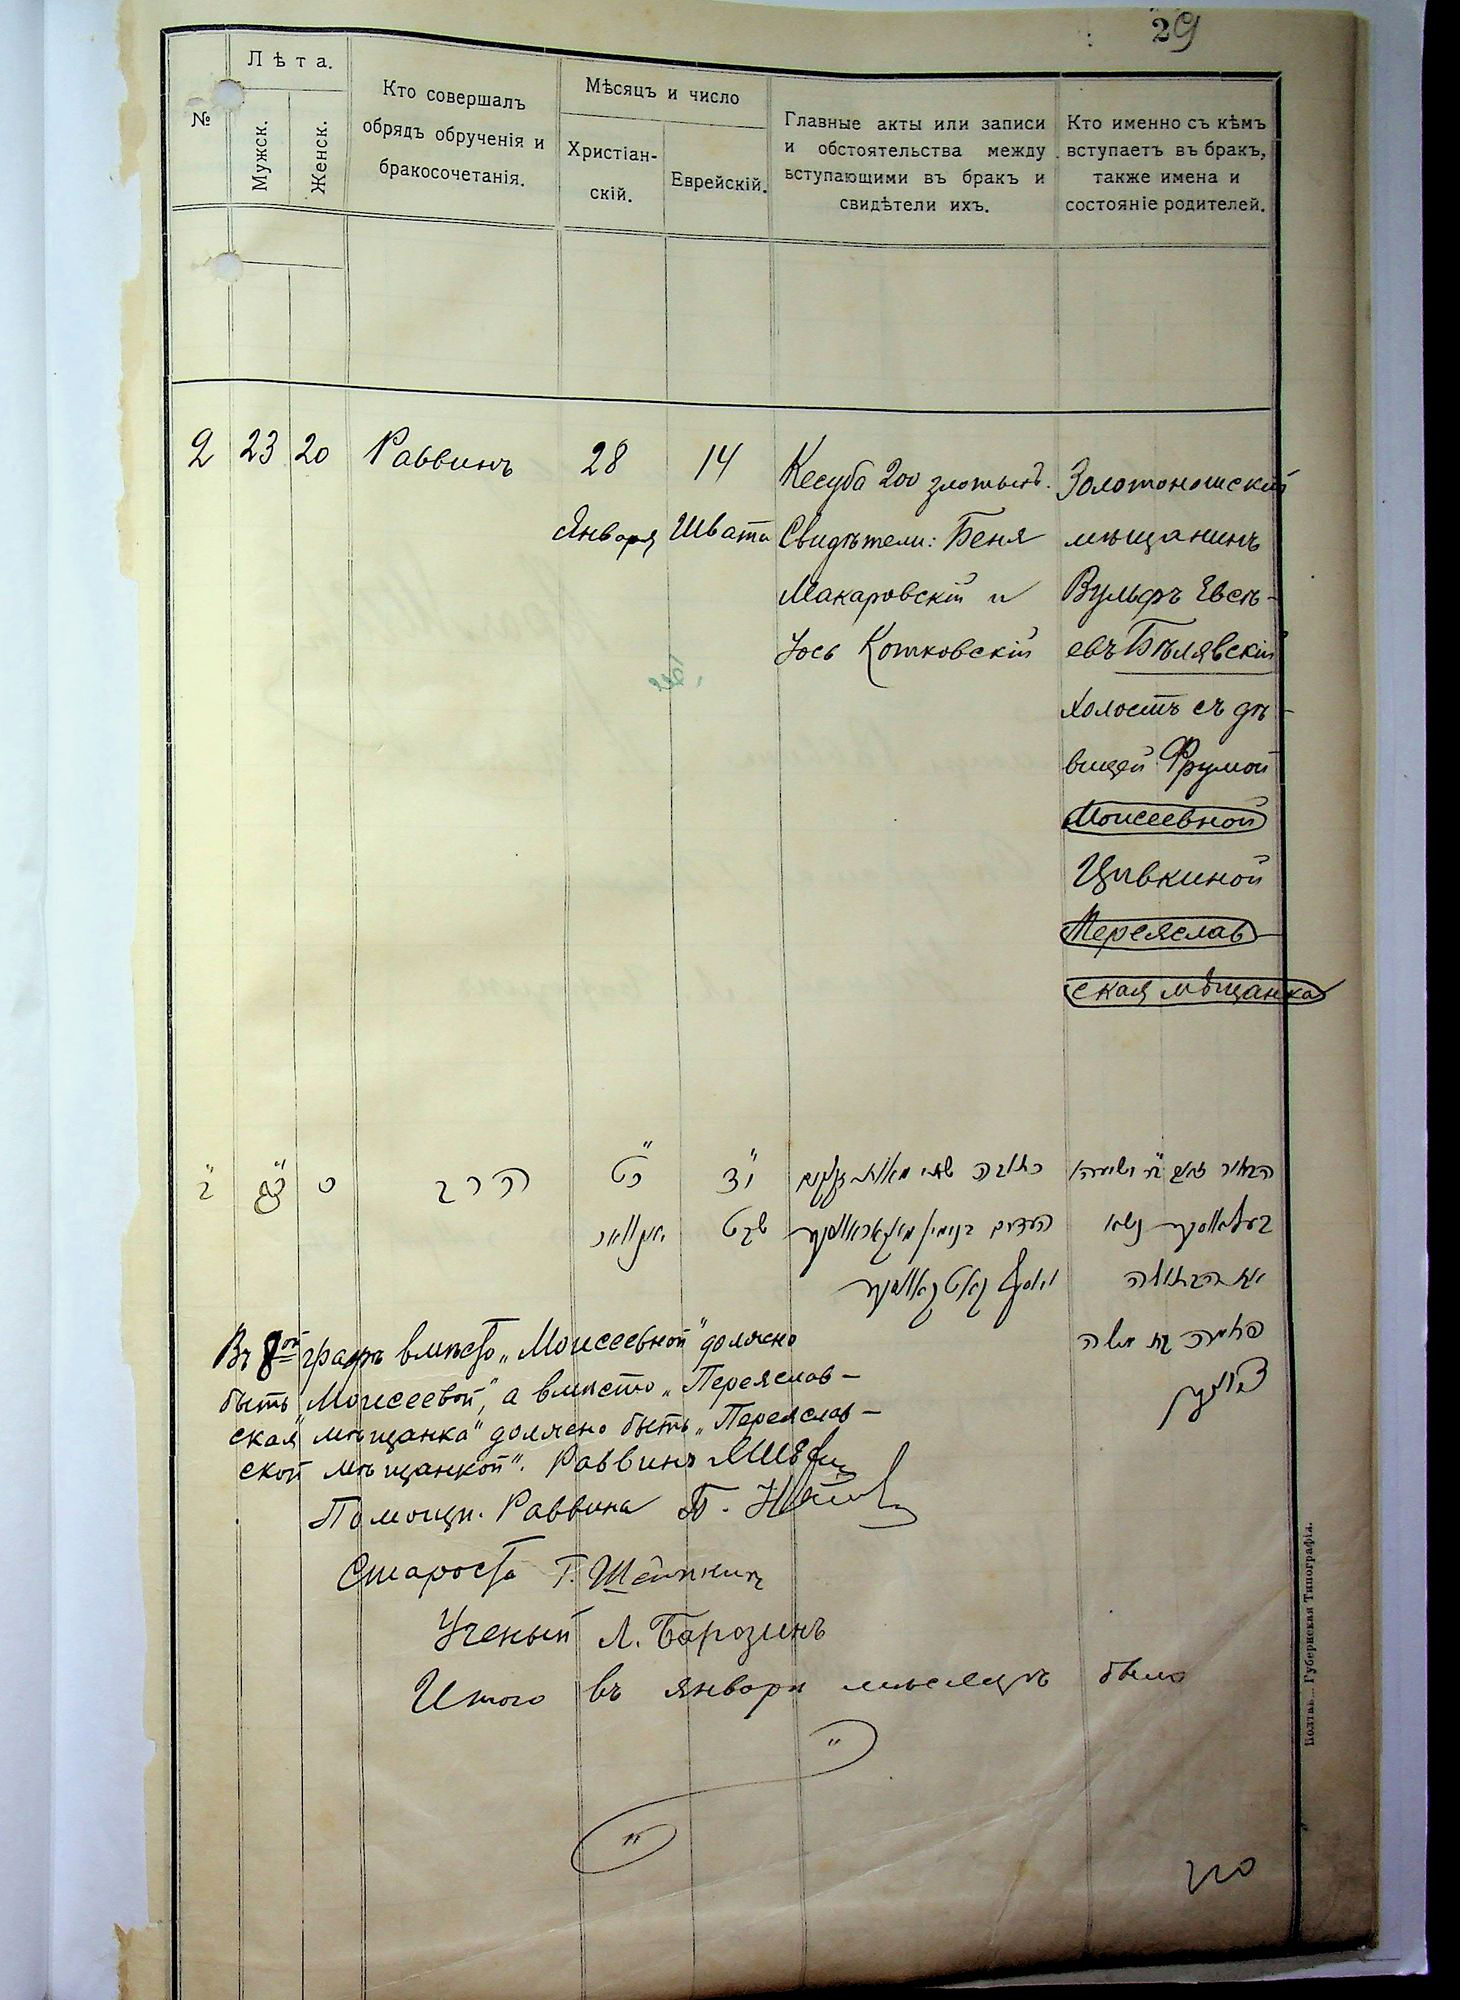 29
№
Лѣта.
Мужск.
Женск.
Кто совершалъ
обрядъ обрученія и
бракосочетанія.
Мѣсяцъ и число
Христіан-
скій.
Еврейскій.
Главные акты или записи
и обстоятельства между
вступающими въ бракъ и
свидѣтели ихъ.
Кто именно съ кѣмъ
вступаетъ въ бракъ,
также имена и
состояніе родителей.
2
23
20
Раввинъ
28
Января
14
Швата
Кесуба 200 злотыхъ.
Свидѣтели: Беня
Макаровскій и
Іось Котковскій
Золотоношскій
мѣщанинъ
Вульфъ Евсѣ-
евъ Бѣлявскій
холостъ съ дѣ-
вицей Фрумой
Моисеевной
Цывкиной
Переяслав
ская мѣщанка
ב
כג
כ
הרב
יד
שבט
כתובה שתי מאות זקוקים
העדים בנימין מאקאראווסקי
הבתולה
פרומה בת משה
Въ 8ой графѣ вмѣсто „Моисеевной" должно
быть „Моисеевой", а вмѣсто „Переяслав-
ская мѣщанка" должно быть „Переяслав-
ской мѣщанкой". Раввинъ
Помощн. Раввина
Староста Г.
Ученый Л. Барозинъ
Итого въ январѣ мѣсяцѣ было
Губернская Типографія.